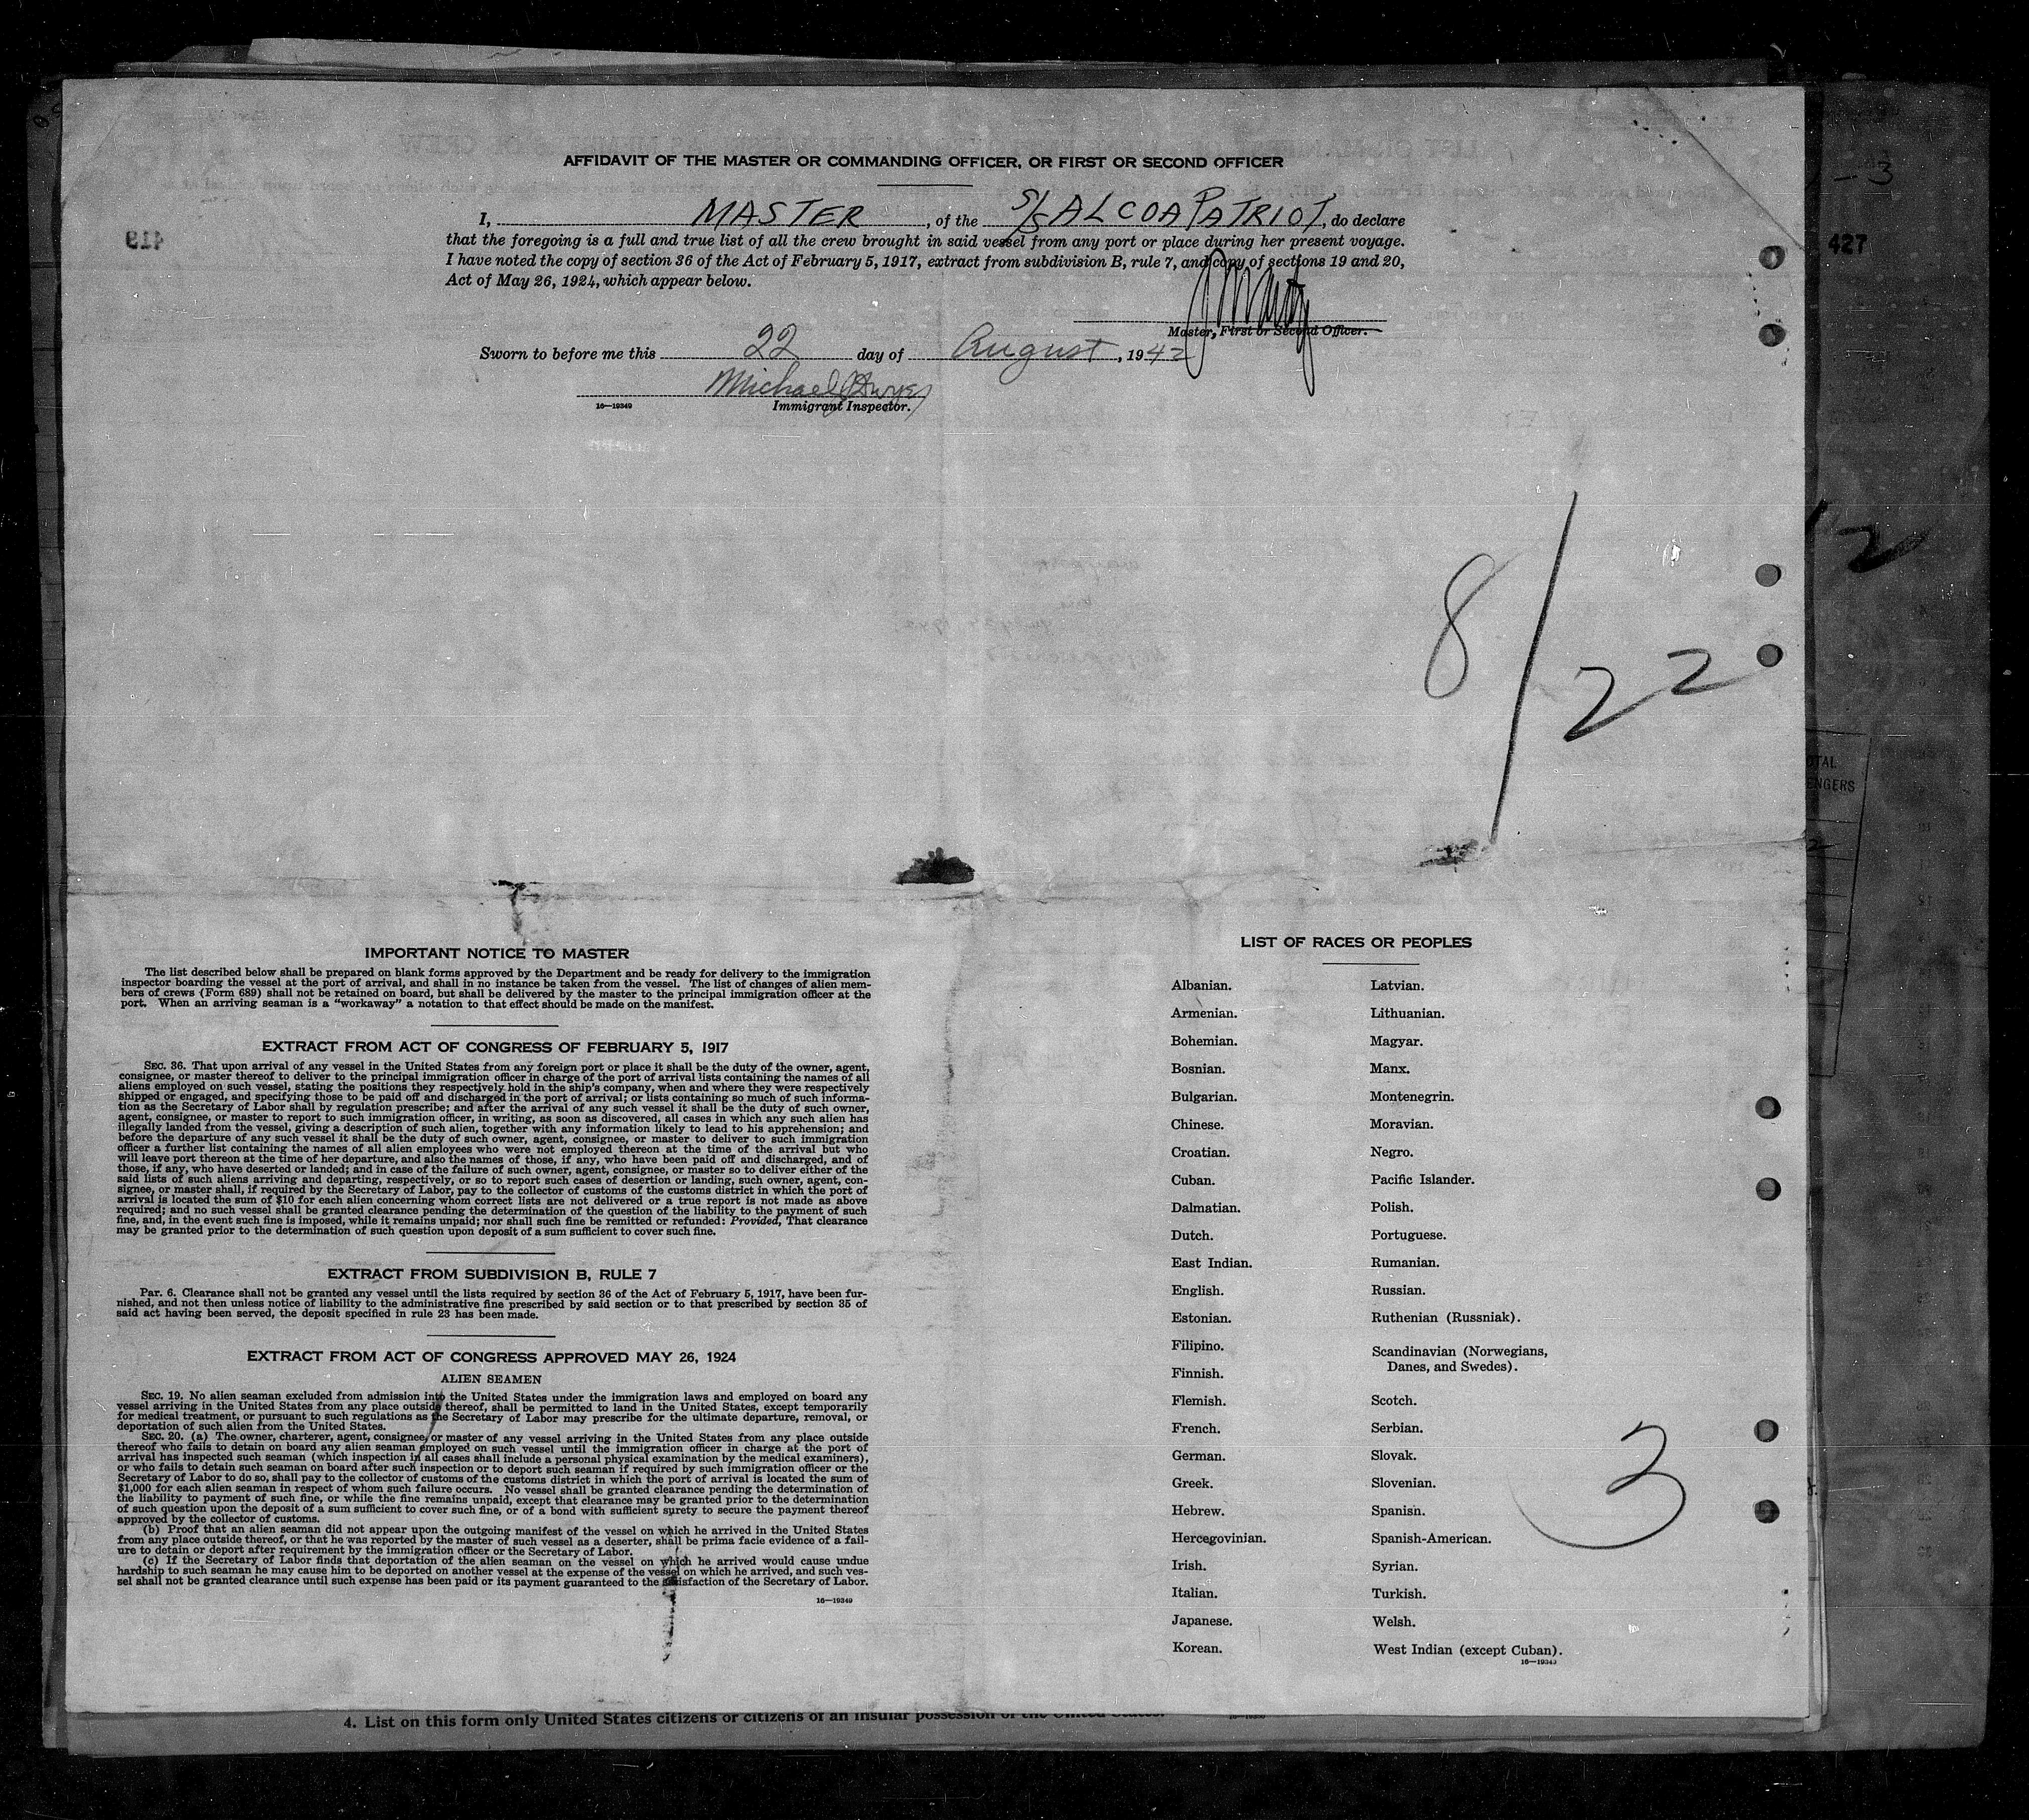 AFFIDAVIT OF THE MASTER OR COMMANDING OFFICER, OR FIRST OR SECOND OFFICER
I, MASTER, of the S/S ALCOA PATRIOT, do declare
that the foregoing is a full and true list of all the crew brought in said vessel from any port or place during her present voyage.
I have noted the copy of section 36 of the Act of February 5, 1917, extract from subdivision B, rule 7, and copy of sections 19 and 20,
Act of May 26, 1924, which appear below.
Master, First or Second Officer.
Sworn to before me this 22 day of August, 1942
Michael Dwyer
16—19349 Immigrant Inspector.
419
427
- 3
8/22
2
OTAL
ENGERS
2
IMPORTANT NOTICE TO MASTER
The list described below shall be prepared on blank forms approved by the Department and be ready for delivery to the immigration
inspector boarding the vessel at the port of arrival, and shall in no instance be taken from the vessel. The list of changes of alien mem-
bers of crews (Form 689) shall not be retained on board, but shall be delivered by the master to the principal immigration officer at the
port. When an arriving seaman is a "workaway" a notation to that effect should be made on the manifest.
EXTRACT FROM ACT OF CONGRESS OF FEBRUARY 5, 1917
SEC. 36. That upon arrival of any vessel in the United States from any foreign port or place it shall be the duty of the owner, agent,
consignee, or master thereof to deliver to the principal immigration officer in charge of the port of arrival lists containing the names of all
aliens employed on such vessel, stating the positions they respectively hold in the ship's company, when and where they were respectively
shipped or engaged, and specifying those to be paid off and discharged in the port of arrival; or lists containing so much of such informa-
tion as the Secretary of Labor shall by regulation prescribe; and after the arrival of any such vessel it shall be the duty of such owner,
agent, consignee, or master to report to such immigration officer, in writing, as soon as discovered, all cases in which any such alien has
illegally landed from the vessel, giving a description of such alien, together with any information likely to lead to his apprehension; and
before the departure of any such vessel it shall be the duty of such owner, agent, consignee, or master to deliver to such immigration
officer a further list containing the names of all alien employees who were not employed thereon at the time of the arrival but who
will leave port thereon at the time of her departure, and also the names of those, if any, who have been paid off and discharged, and of
those, if any, who have deserted or landed; and in case of the failure of such owner, agent, consignee, or master so to deliver either of the
said lists of such aliens arriving and departing, respectively, or so to report such cases of desertion or landing, such owner, agent, con-
signee, or master shall, if required by the Secretary of Labor, pay to the collector of customs of the customs district in which the port of
arrival is located the sum of $10 for each alien concerning whom correct lists are not delivered or a true report is not made as above
required; and no such vessel shall be granted clearance pending the determination of the question of the liability to the payment of such
fine, and, in the event such fine is imposed, while it remains unpaid; nor shall such fine be remitted or refunded: Provided, That clearance
may be granted prior to the determination of such question upon deposit of a sum sufficient to cover such fine.
EXTRACT FROM SUBDIVISION B, RULE 7
Par. 6. Clearance shall not be granted any vessel until the lists required by section 36 of the Act of February 5, 1917, have been fur-
nished, and not then unless notice of liability to the administrative fine prescribed by said section or to that prescribed by section 35 of
said act having been served, the deposit specified in rule 23 has been made.
EXTRACT FROM ACT OF CONGRESS APPROVED MAY 26, 1924
ALIEN SEAMEN
SEC. 19. No alien seaman excluded from admission into the United States under the immigration laws and employed on board any
vessel arriving in the United States from any place outside thereof, shall be permitted to land in the United States, except temporarily
for medical treatment, or pursuant to such regulations as the Secretary of Labor may prescribe for the ultimate departure, removal, or
deportation of such alien from the United States.
SEC. 20. (a) The owner, charterer, agent, consignee, or master of any vessel arriving in the United States from any place outside
thereof who fails to detain on board any alien seaman employed on such vessel until the immigration officer in charge at the port of
arrival has inspected such seaman (which inspection in all cases shall include a personal physical examination by the medical examiners),
or who fails to detain such seaman on board after such inspection or to deport such seaman if required by such immigration officer or the
Secretary of Labor to do so, shall pay to the collector of customs of the customs district in which the port of arrival is located the sum of
$1,000 for each alien seaman in respect of whom such failure occurs. No vessel shall be granted clearance pending the determination of
the liability to payment of such fine, or while the fine remains unpaid, except that clearance may be granted prior to the determination
of such question upon the deposit of a sum sufficient to cover such fine, or of a bond with sufficient surety to secure the payment thereof
approved by the collector of customs.
(b) Proof that an alien seaman did not appear upon the outgoing manifest of the vessel on which he arrived in the United States
from any place outside thereof, or that he was reported by the master of such vessel as a deserter, shall be prima facie evidence of a fail-
ure to detain or deport after requirement by the immigration officer or the Secretary of Labor.
(c) If the Secretary of Labor finds that deportation of the alien seaman on the vessel on which he arrived would cause undue
hardship to such seaman he may cause him to be deported on another vessel at the expense of the vessel on which he arrived, and such ves-
sel shall not be granted clearance until such expense has been paid or its payment guaranteed to the satisfaction of the Secretary of Labor.
16—19349
LIST OF RACES OR PEOPLES
Albanian.
Armenian.
Bohemian.
Bosnian.
Bulgarian.
Chinese.
Croatian.
Cuban.
Dalmatian.
Dutch.
East Indian.
English.
Estonian.
Filipino.
Finnish.
Flemish.
French.
German.
Greek.
Hebrew.
Hercegovinian.
Irish.
Italian.
Japanese.
Korean.
Latvian.
Lithuanian.
Magyar.
Manx.
Montenegrin.
Moravian.
Negro.
Pacific Islander.
Polish.
Portuguese.
Rumanian.
Russian.
Ruthenian (Russniak).
Scandinavian (Norwegians,
Danes, and Swedes).
Scotch.
Serbian.
Slovak.
Slovenian.
Spanish.
Spanish-American.
Syrian.
Turkish.
Welsh.
West Indian (except Cuban).
16—19349
3
4. List on this form only United States citizens or citizens of an insular possession of the United States.